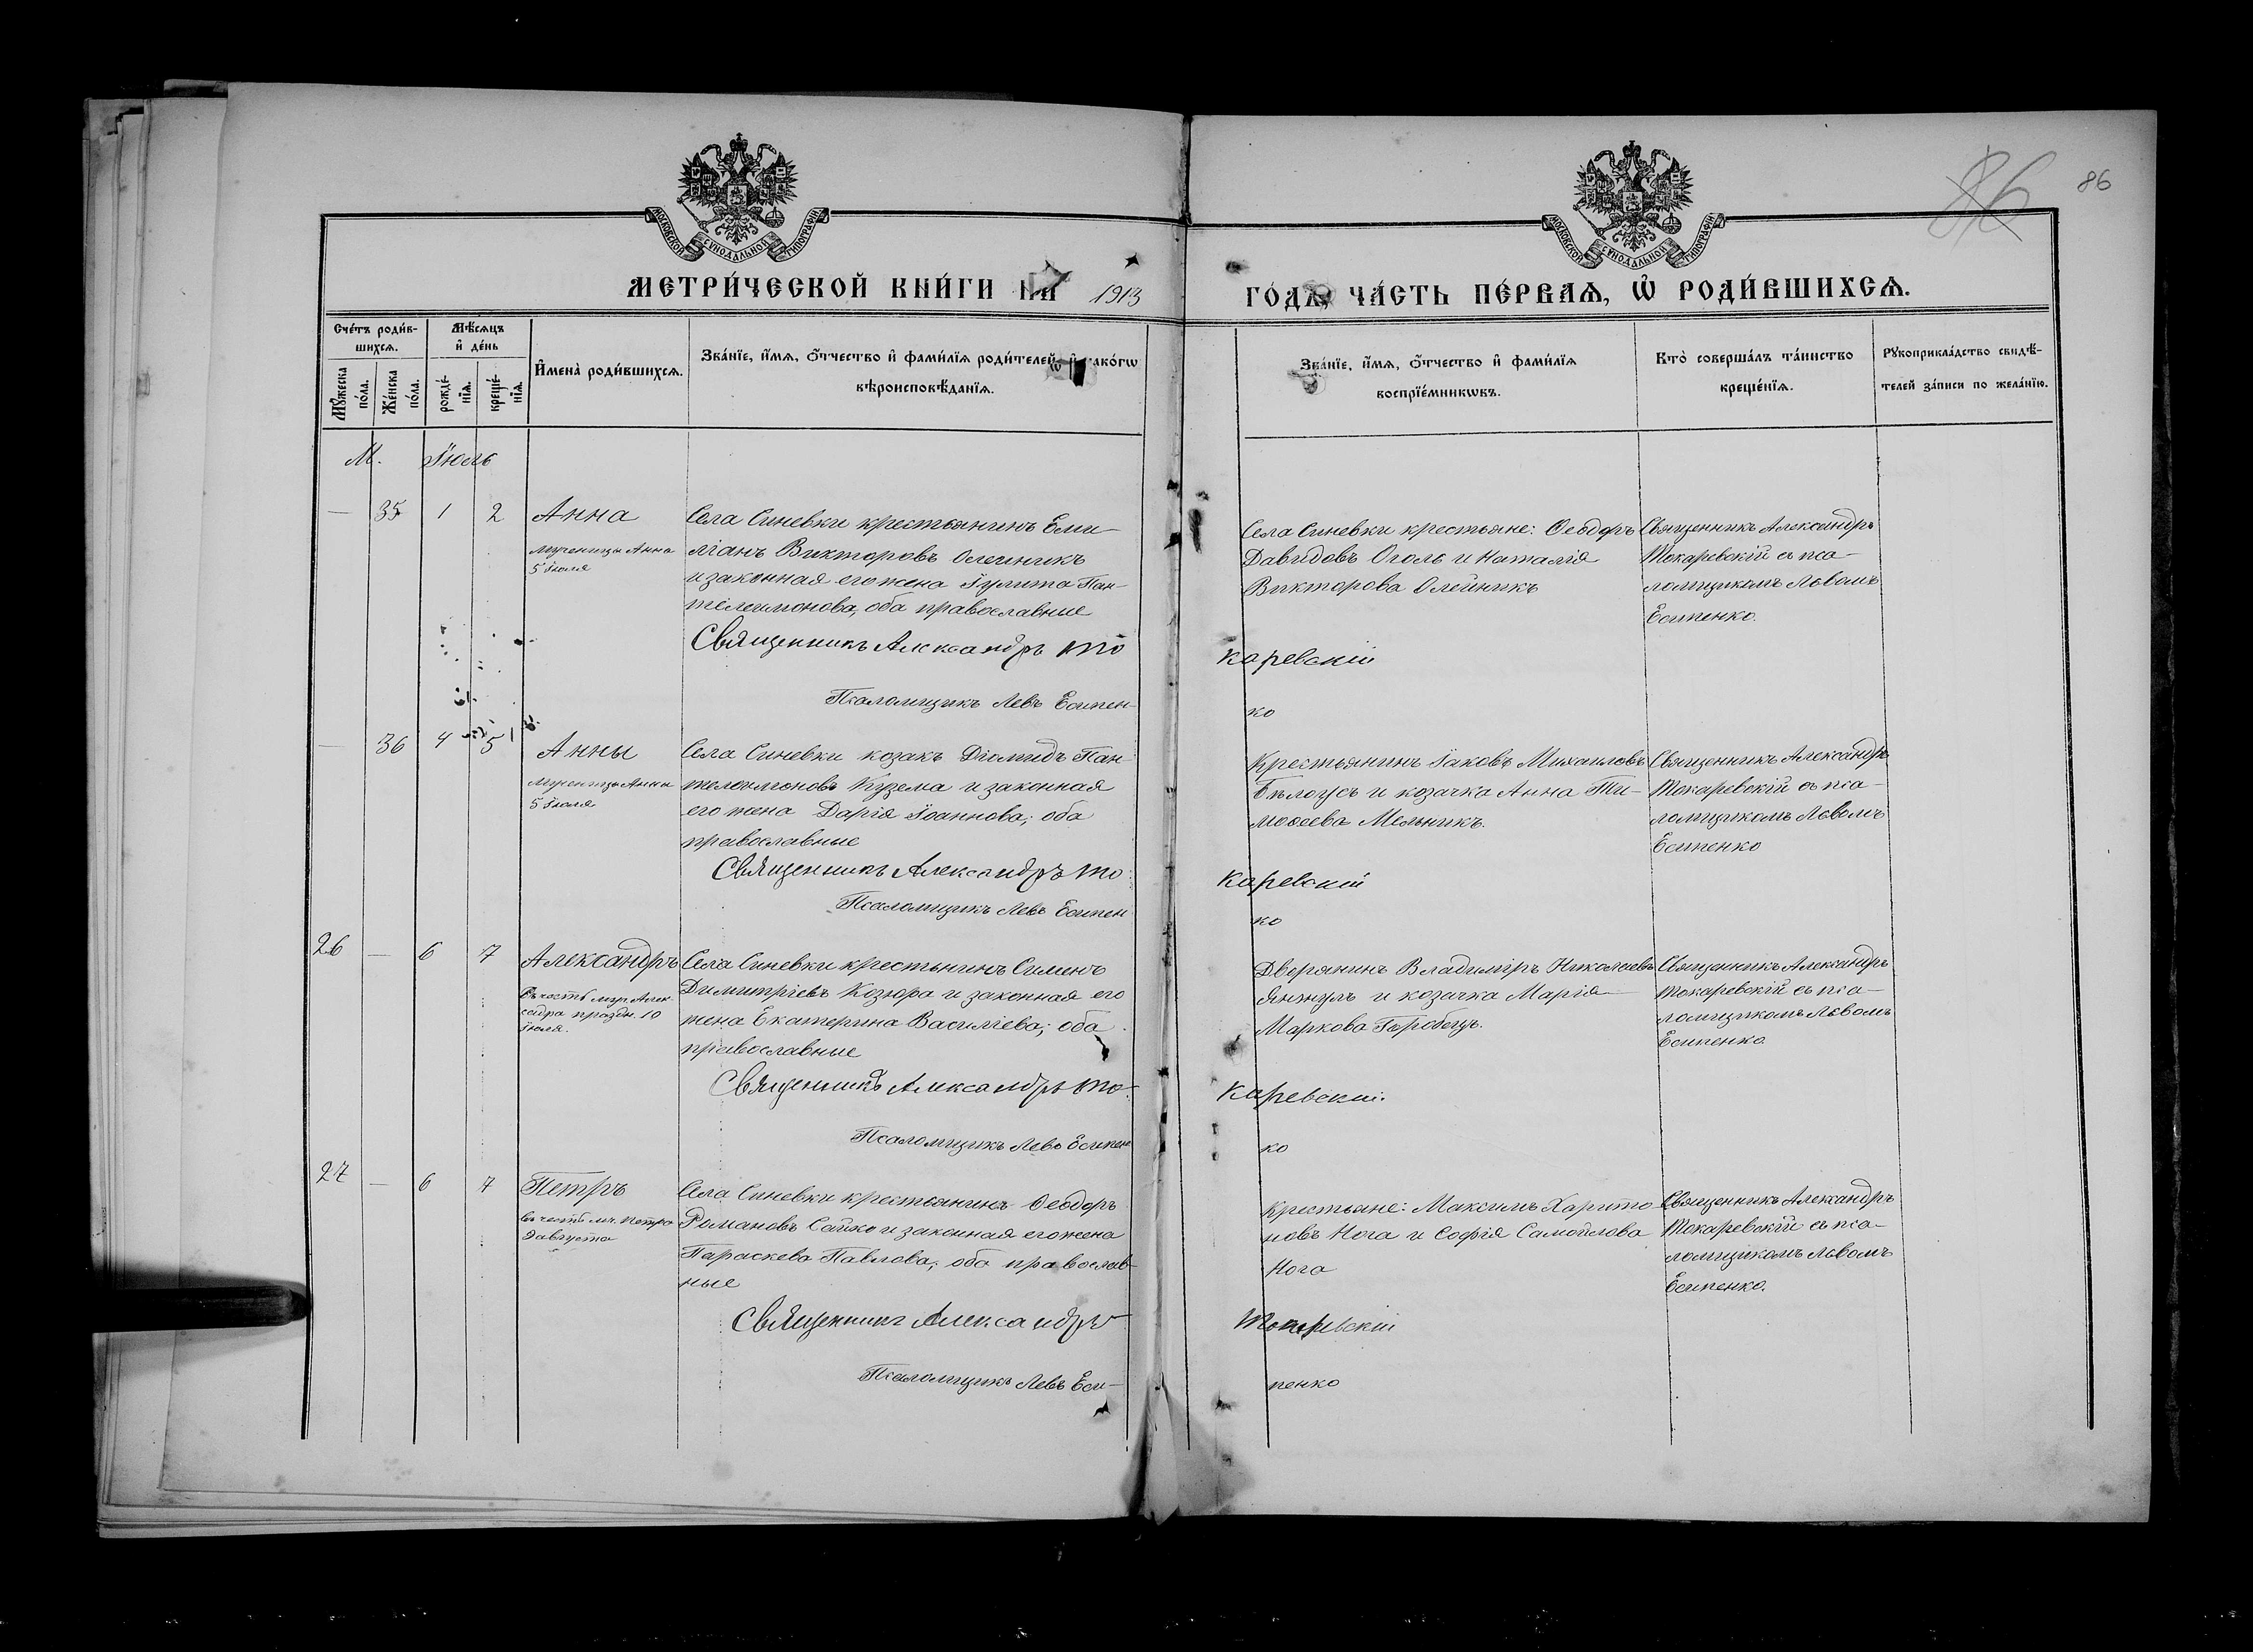 86
86
МОСКОВСКОЙ СѴНОДАЛЬНОЙ ТИПОГРАФІИ
МОСКОВСКОЙ СѴНОДАЛЬНОЙ ТИПОГРАФІИ
МЕТРИ́ЧЕСКОЙ КНИ́ГИ НА 1913
ГО́ДЪ, ЧА́СТЬ ПЕ́РВАЯ, Ѽ РОДИ́ВШИХСЯ.
Сче́тъ роди́в-
шихсѧ.
Мѣ́сѧцъ
и҆ де́нь
Мꙋ́жеска
по́ла.
Же́нска
по́ла.
рожде́-
нїѧ.
креще́-
нїѧ.
И҆мена̀ роди́вшихсѧ.
Зва́нїе, и҆́мѧ, ѻ҆́тчество и҆ фами́лїѧ роди́телей, и҆ како́гѡ
вѣроисповѣ́данїѧ.
Зва́нїе, и҆́мѧ, ѻ҆́тчество и҆ фами́лїѧ
воспрїе́мникѡвъ.
Кто̀ соверша́лъ та́инство
креще́нїѧ.
Рꙋкоприкла́дство свидѣ́-
телей за́писи по жела́нїю.
М. Іюль
— 35 1 2 Анна
мученицы Анна
5 Іюля
Села Синевки крестьянинъ Еми-
ліанъ Викторовъ Олейникъ
и законная его жена Іулита Пан-
телеимонова, оба православные
Священникъ Александръ То
каревскій
Псаломщикъ Левъ Есипен-
ко
Села Синевки крестьяне: Ѳеодоръ
Давидовъ Оголь и Наталія
Викторова Олейникъ
Священникъ Александръ
Токаревскій съ пса-
ломщикомъ Львомъ
Есипенко.
— 36 4 5 Анны
Мученицы Анны
5 Іюля
Села Синевки козакъ Діомидъ Пан-
телеимоновъ Кузема и законная
его жена Дарія Іоаннова; оба
православные
Священникъ Александръ То
каревскій
Псаломщикъ Левъ Есипен
ко
Крестьянинъ Іаковъ Михаиловъ
Бѣлоусъ и козачка Анна Ти-
моѳеева Мельникъ.
Священникъ Александръ
Токаревскій съ пса-
ломщикомъ Львомъ
Есипенко
26 — 6 7 Александръ
Въ честь муч. Алек-
сандра праздн. 10
Іюля.
Села Синевки крестьянинъ Симеонъ
Димитріевъ Козюра и законная его
жена Екатерина Василіева; оба
православные
Священникъ Александръ То-
каревскій.
Псаломщикъ Левъ Есипен
ко
Дворянинъ Владиміръ Николаевъ
Янжулъ и козачка Марія
Маркова
Священникъ Александръ
Токаревскій съ пса-
ломщикомъ Львомъ
Есипенко.
27 — 6 7 Петръ
въ честь мч. Петра
9 августа
Села Синевки крестьянинъ Ѳеодоръ
Романовъ Сайко и законная его жена
Параскева Павлова; оба православ-
ные
Священникъ Александръ
Токаревскій
Псаломщикъ Левъ Еси-
пенко
Крестьяне: Максимъ Харито-
новъ Нога и Софія Самойлова
Нога
Священникъ Александръ
Токаревскій съ пса-
ломщикомъ Львомъ
Есипенко.